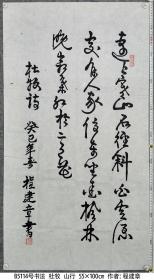 远上寒山石径斜白云深
处有人家停车坐爱枫林
晚霜叶红于二月花
杜牧诗 癸巳年春 程建章书
B5114号书法 杜牧 山行 55×100cm 作者:程建章